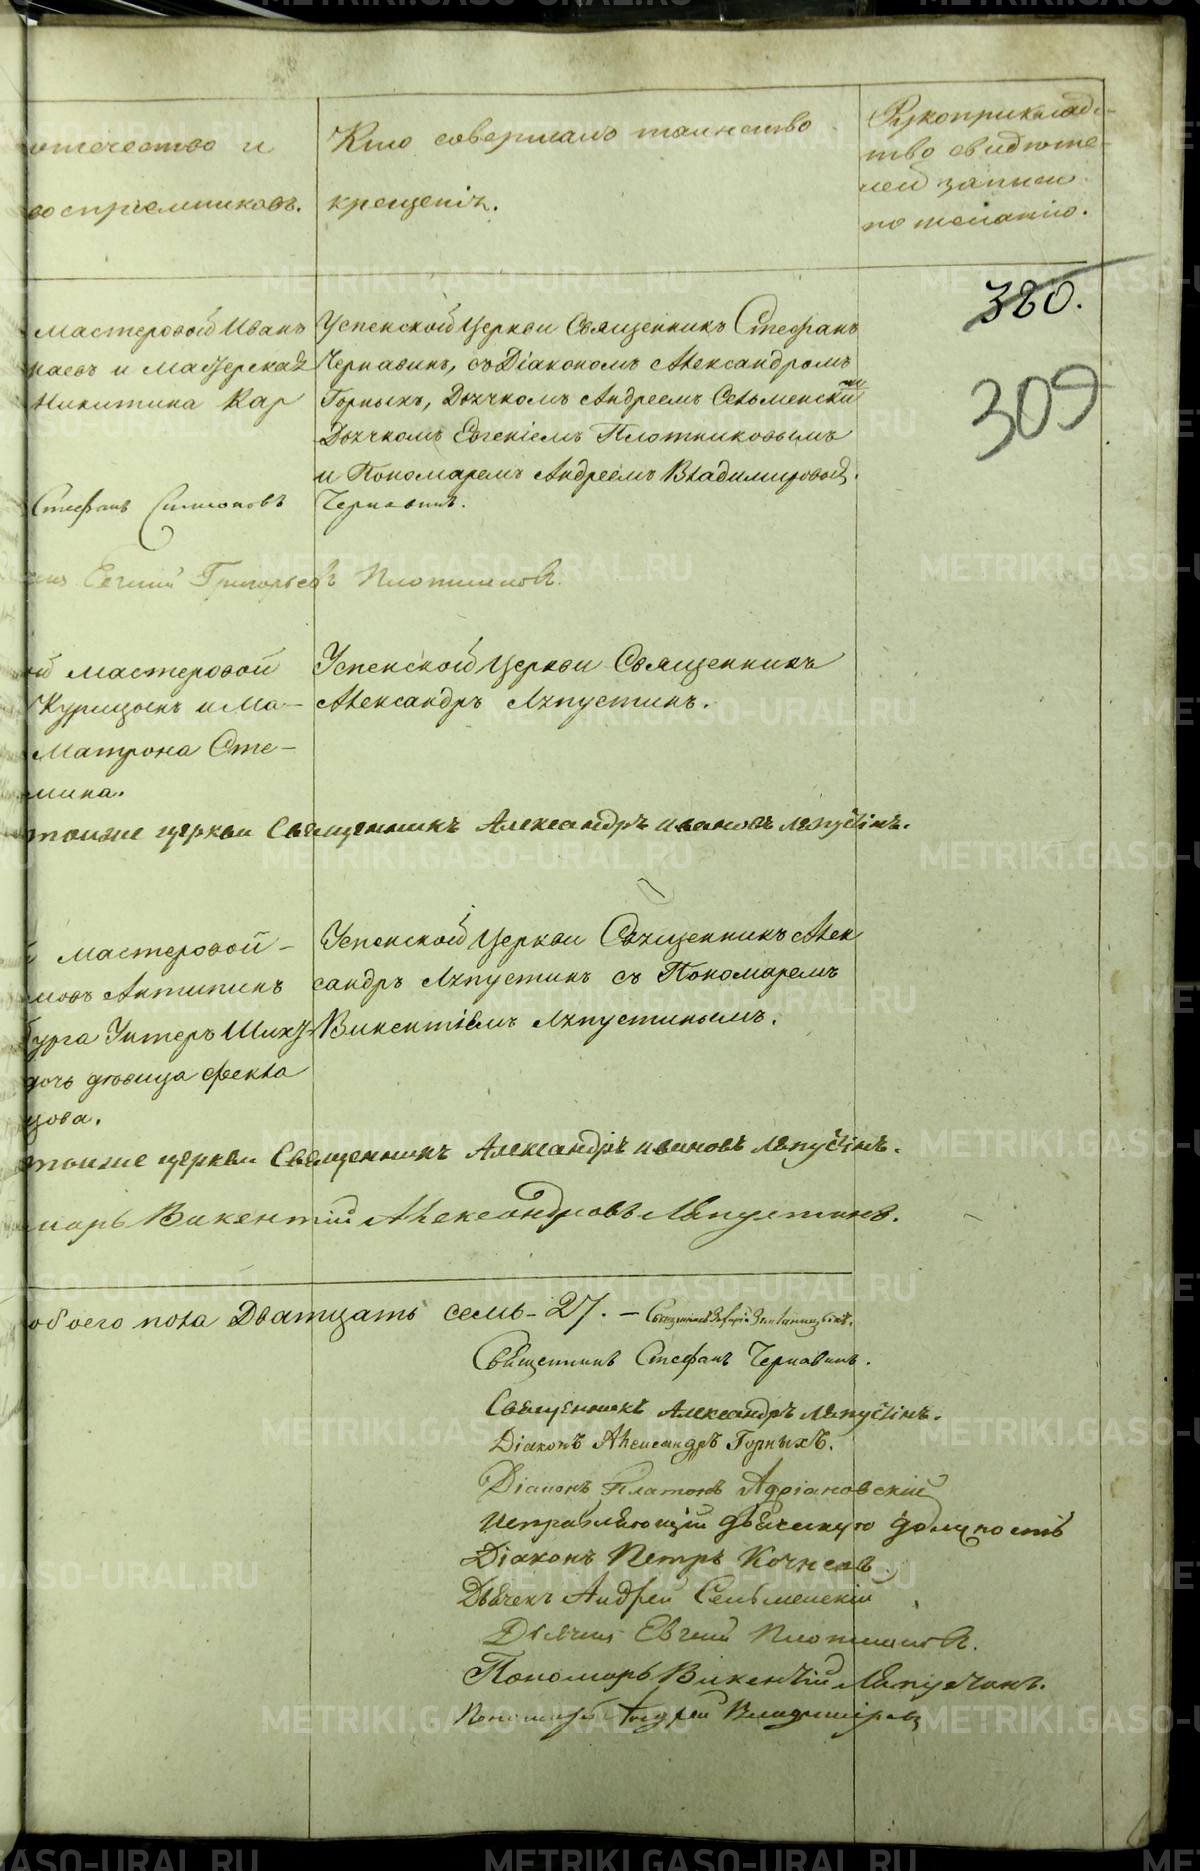 отечество и
воспріемниковъ.
Кто совершалъ таинство
крещенія.
Рукоприклад-
ство свидѣте-
лей записи
по желанію.
380.
309
мастеровой Иванъ
наевъ и Мастерская
Никитина Кар
Успенской Церкви Священникъ Стефанъ
Чернавинъ, съ Діакономъ Александромъ
Горныхъ, Дьячкомъ Андреемъ Сельменски
ми
Дьячкомъ Евгеніемъ Плотниковымъ
и Пономаремъ Андреемъ Владимировой.
Стефанъ Симоновъ Чернавинъ.
Евгений Григорьевъ Плотниковъ.
ій мастеровой
Курицынъ и Ма-
Матрона Сте-
мина.
Успенской Церкви Священникъ
Александръ Ляпустинъ.
тоиже церкви Священникъ Александръ Ивановъ Ляпустінъ.
мастеровой -
мовъ Антипинъ
бурга Унтеръ Шихт-
дочь дѣвица Фекла
цова.
Успенской Церкви Священникъ Алек
сандръ Ляпустинъ съ Пономаремъ
Викентіемъ Ляпустинымъ.
тоиже церкви Священникъ Александръ Ивановъ Ляпустінъ.
марь Викентій Александровъ Ляпустинъ.
обоего пола Двадцать семь - 27. -
Священникъ Стефанъ Чернавинъ.
Священникъ Александръ Ляпустінъ.
Діаконъ Александръ Горныхъ.
Діаконъ Платонъ Адріановскій
Исправляющій дьяческую должность
Діаконъ Петръ Кочневъ
Дьячекъ Андрей Сельменскій
Дьячекъ Евгений Плотниковъ.
Пономарь Викентій Ляпустинъ.
Пономарь Андрей Владиміровъ
METRIKI.GASO-URAL.RU